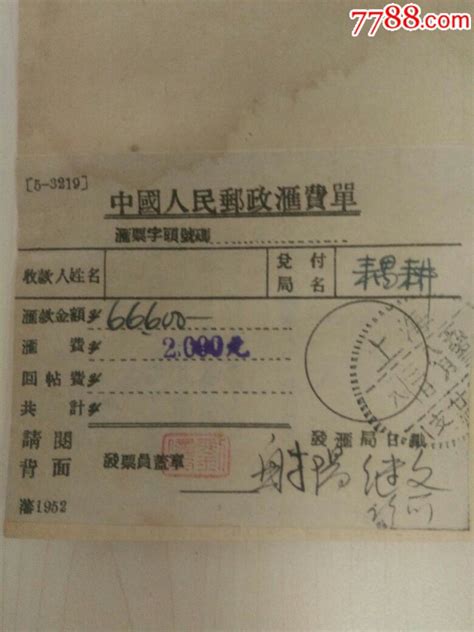 7788.com
[5-3219]
中國人民郵政滙費單
滙票字頭號碼
收款人姓名 兌付局名 耦耕
滙款金額 66600—
滙費 2.000元
回帖費
共計
請閱背面 發票員蓋章 發滙局日戳
上海
射陽
滬1952